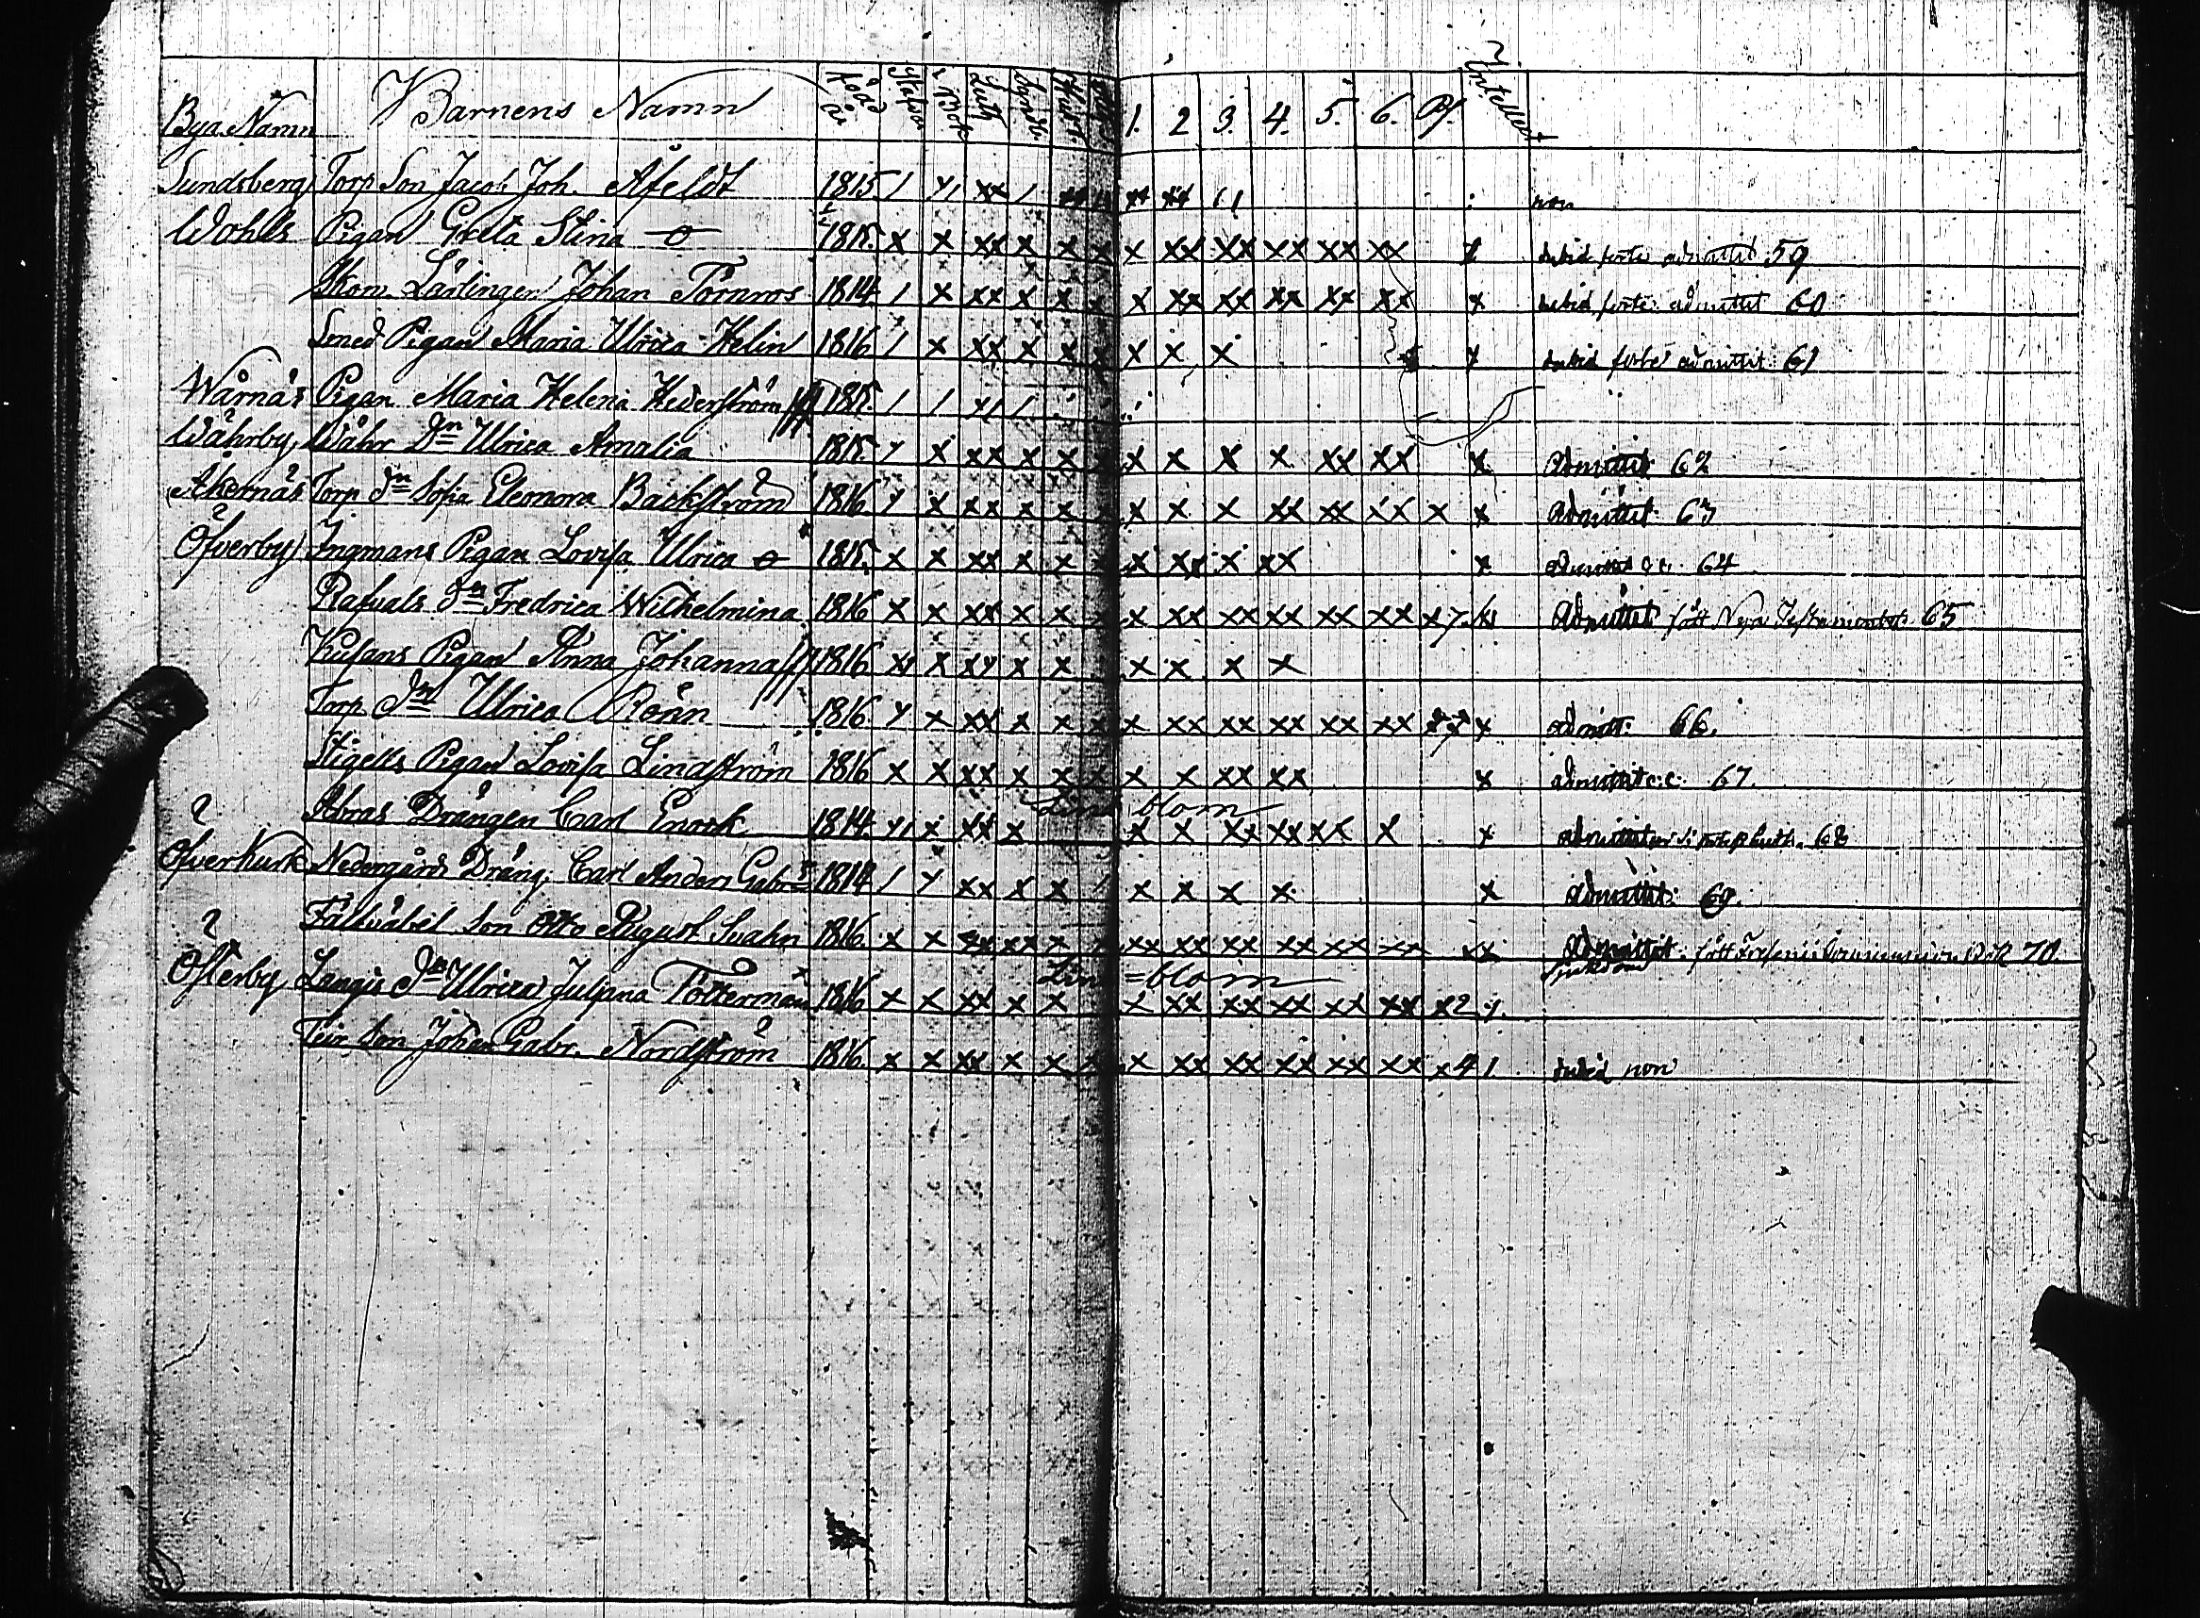 Bya Namn Barnens Namn född år Stafva i Bok Luth 1. 2 3. 4. 5. 6. Intellect
Sundsberg Torp Son Jacob Joh. Åfeldt 1815 / x/ xx / xx xx // non
Wohls Pigan Greta Stina 1815. x x xx x x x x xx xx xx xx xx x dubid forte admittit 59
Skom. Lärlingen Johan Törnroos 1814 / x xx x x x x xx xx xx xx xx x dubid forte admittit 60
Smed Pigan Maria Ulrica Helin 1816 / x xx x x x x x x x dubid forte admittit 61
Wårnäs Pigan Maria Helena Hederström 1815. / / x/ /
Wåhrby Wåhr Dn Ulrica Amalia 1815 x x xx x x x x x x xx xx x admittit 62
Åkernäs Torp dn Sofia Eleonora Backström 1816 x x xx x x x x x xx xx xx x x Admittit 63
Öfverby Ingmans Pigan Lovisa Ulrica 1815. x x xx x x x xx x xx x 64
Rafvals dn Fredrica Wilhelmina 1816 x x xx x x x xx xx xx xx xx x7 Admittit fått Nya Testamentet 65
Pigan Anna Johanna 1816 xx x xx x x x x x x
Torp Dn Ulrica Rönn 1816. x x xx x x x xx xx xx xx xx x admitt: 66.
Stigells Pigan Lovisa Lindström 1816 x x xx x x x x x xx xx x admittit c: c: 67.
Lind blom
Abras Drängen Carl Enock 1814 x/ x xx x x x xx xx xx x x admittit 68
Öfverkurk Nedergårds Dräng. Carl Anders Gabr: 1814 / x xx x x / x x x x x Admittit: 69.
Fältväbel Son Otto August Svahn 1816. x x xx xx x x xx xx xx xx xx xx xx Admittit fått 70
Lind=blom
Österby Langis dn Ulrica Juliana Töttermann 1816 x x xx x x x xx xx xx xx xx x2
Teir Son Johan Gabr. Nordström 1816. x x xx x x x x xx xx xx xx xx x4 / dubid non